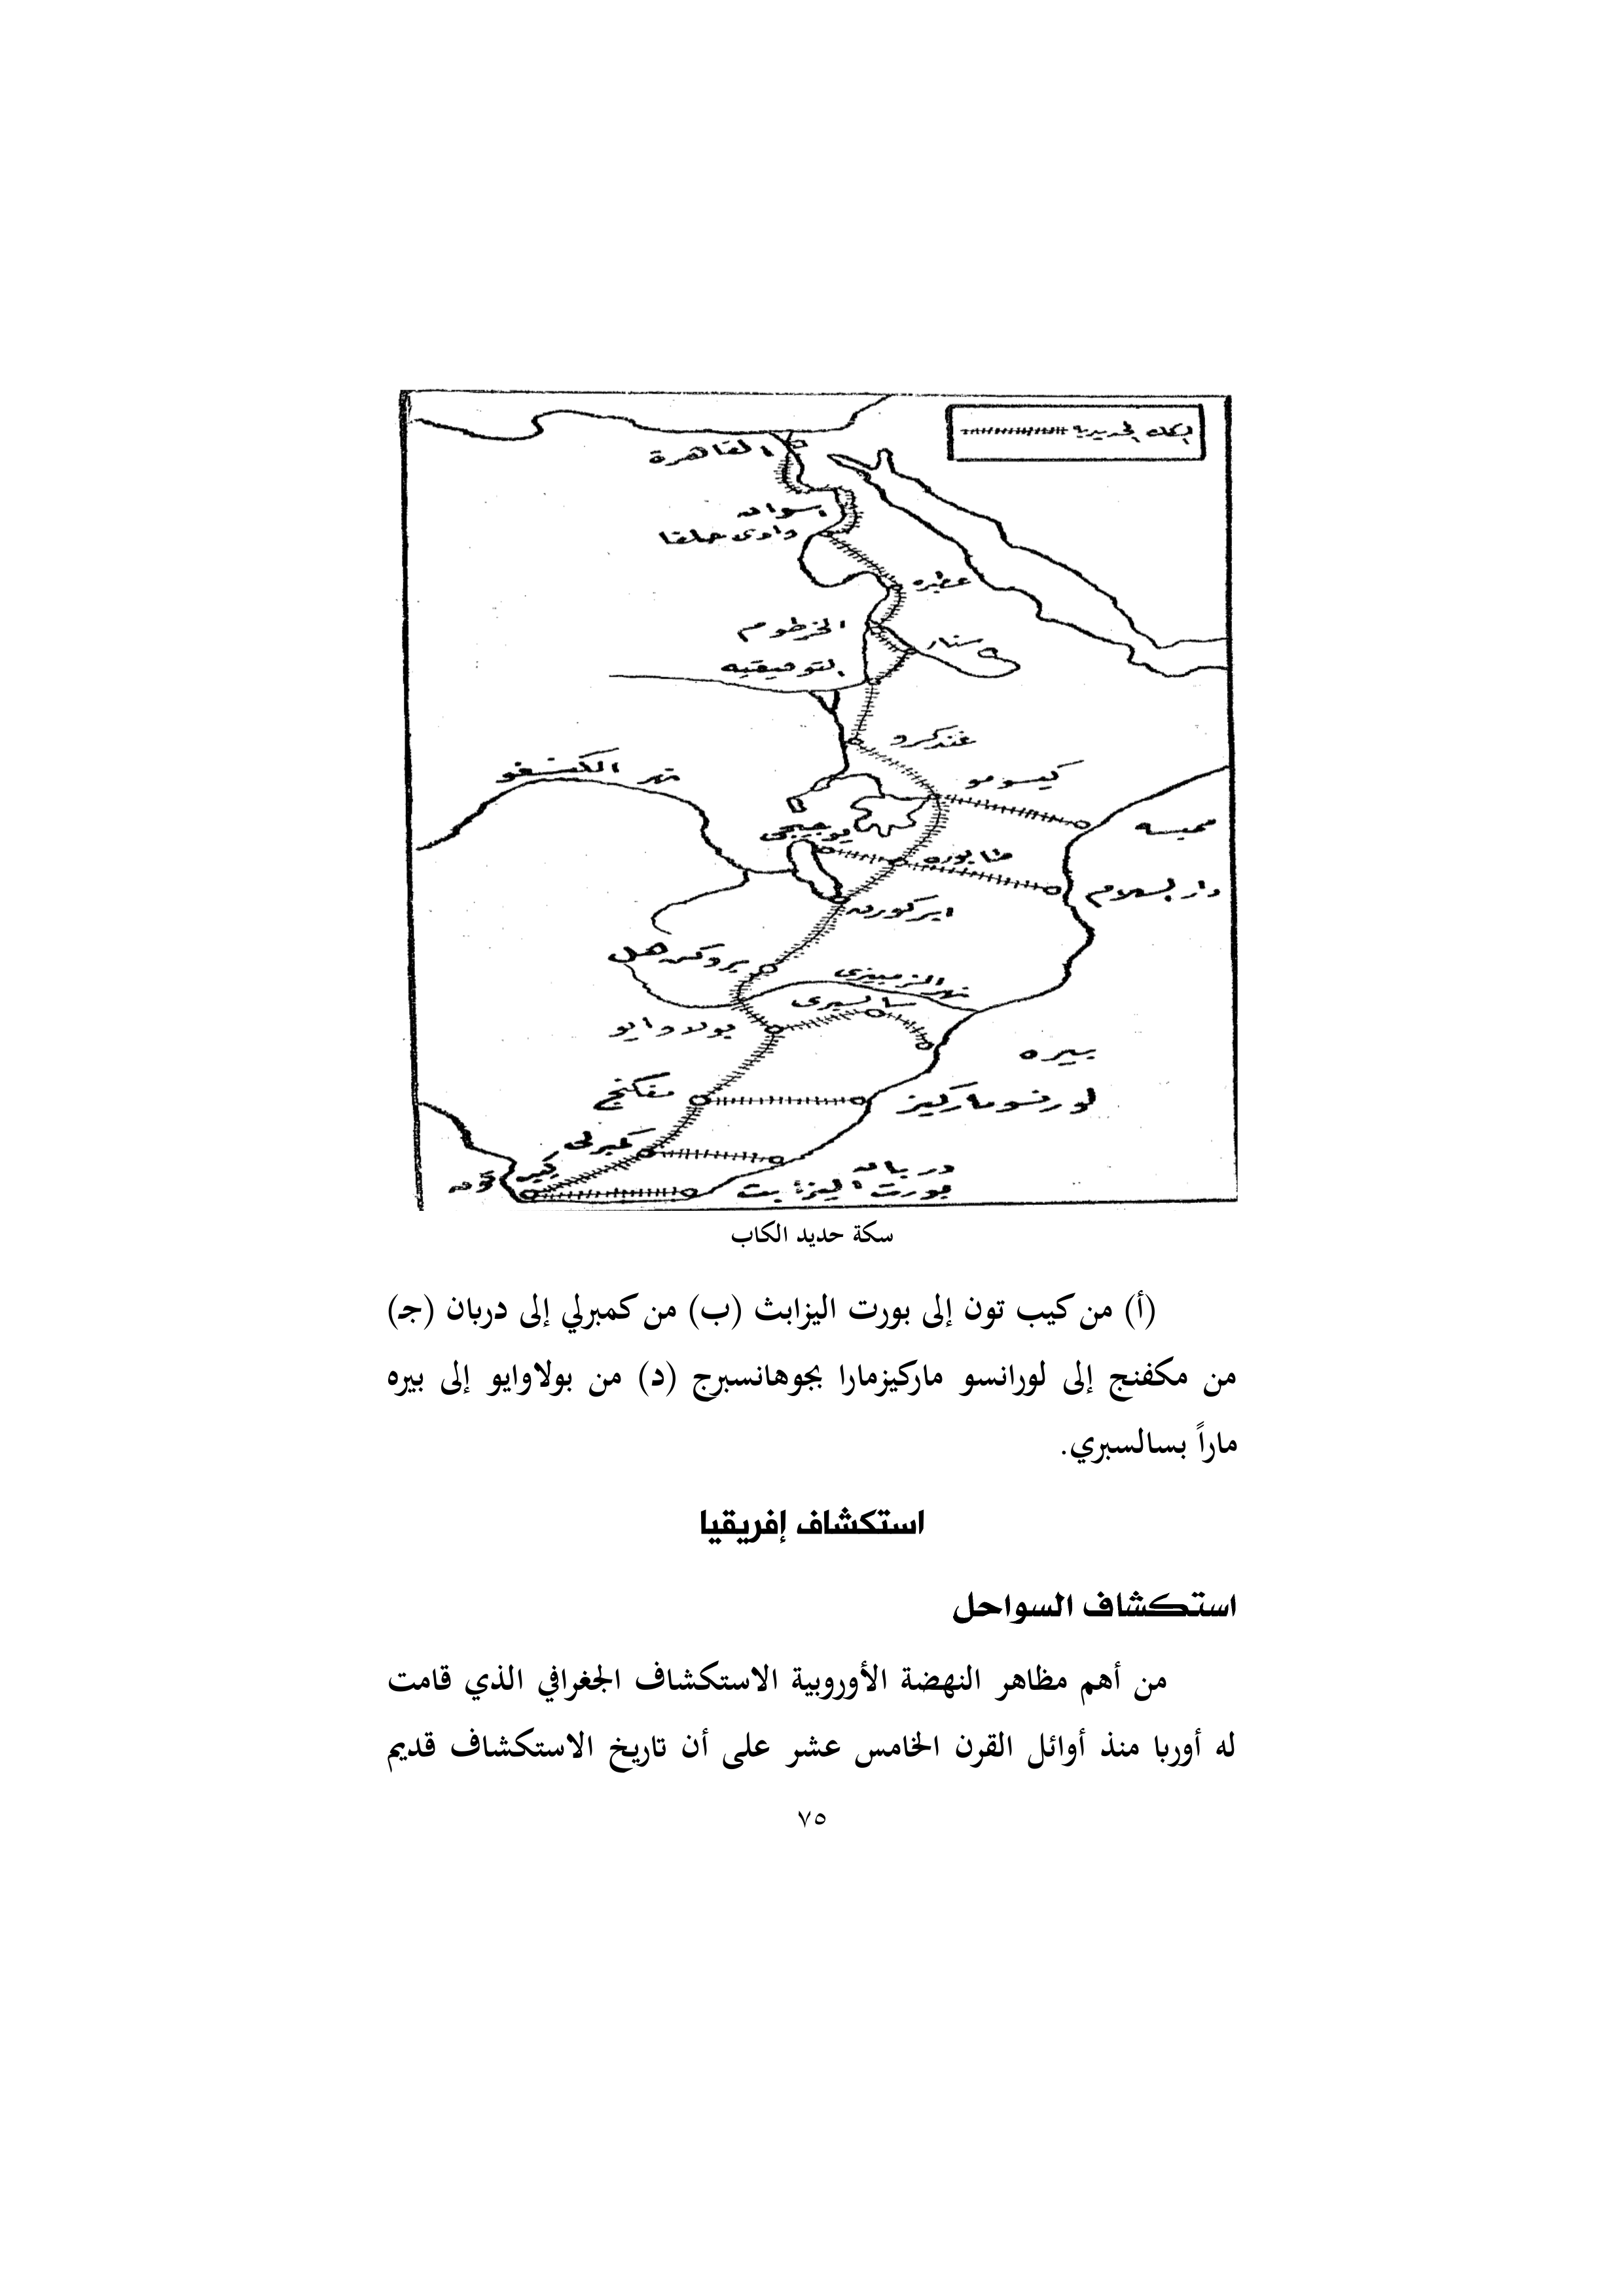 السكك الحديدية
القاهرة
اسوان
وادى حلفا
عطبره
الخرطوم
سنار
التوفيقيه
غندكرو
كيسومو
نهر الكنغو
ممبسه
يوجيجى
طابوره
دار السلام
ابركورن
بروكن هل
نهر الزمبيزى
سالسبرى
بولاوايو
بيره
مفكنج
لورنسو ماركيز
كمبرلى
دربان
كيب تون
بورت اليزابت
سكة حديد الكاب
(أ) من كيب تون إلى بورت اليزابث (ب) من كمبرلي إلى دربان (جـ)
من مكفنج إلى لورانسو ماركيزمارا بجوهانسبرج (د) من بولاوايو إلى بيره
ماراً بسالسبري.
استكشاف إفريقيا
استكشاف السواحل
من أهم مظاهر النهضة الأوروبية الاستكشاف الجغرافي الذي قامت
له أوربا منذ أوائل القرن الخامس عشر على أن تاريخ الاستكشاف قديم
٧٥